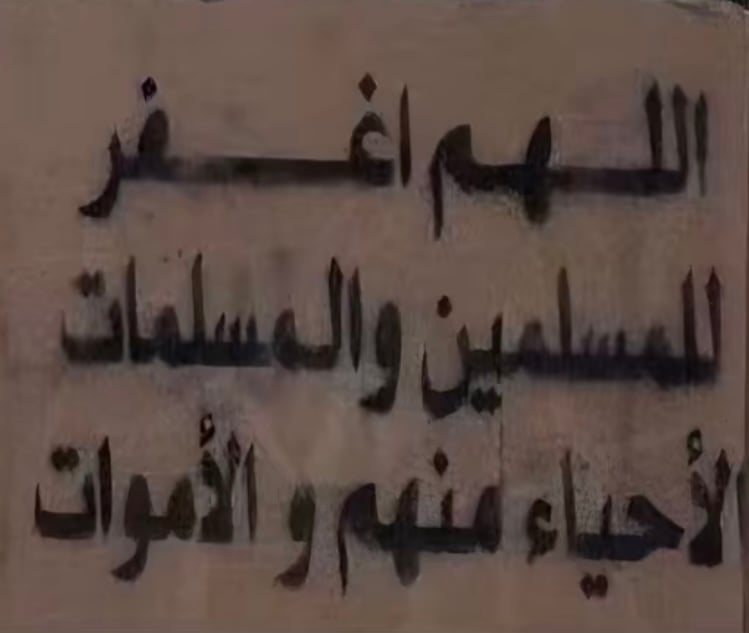 اللهم اغفر
للمسلمين والمسلمات
الأحياء منهم و الأموات